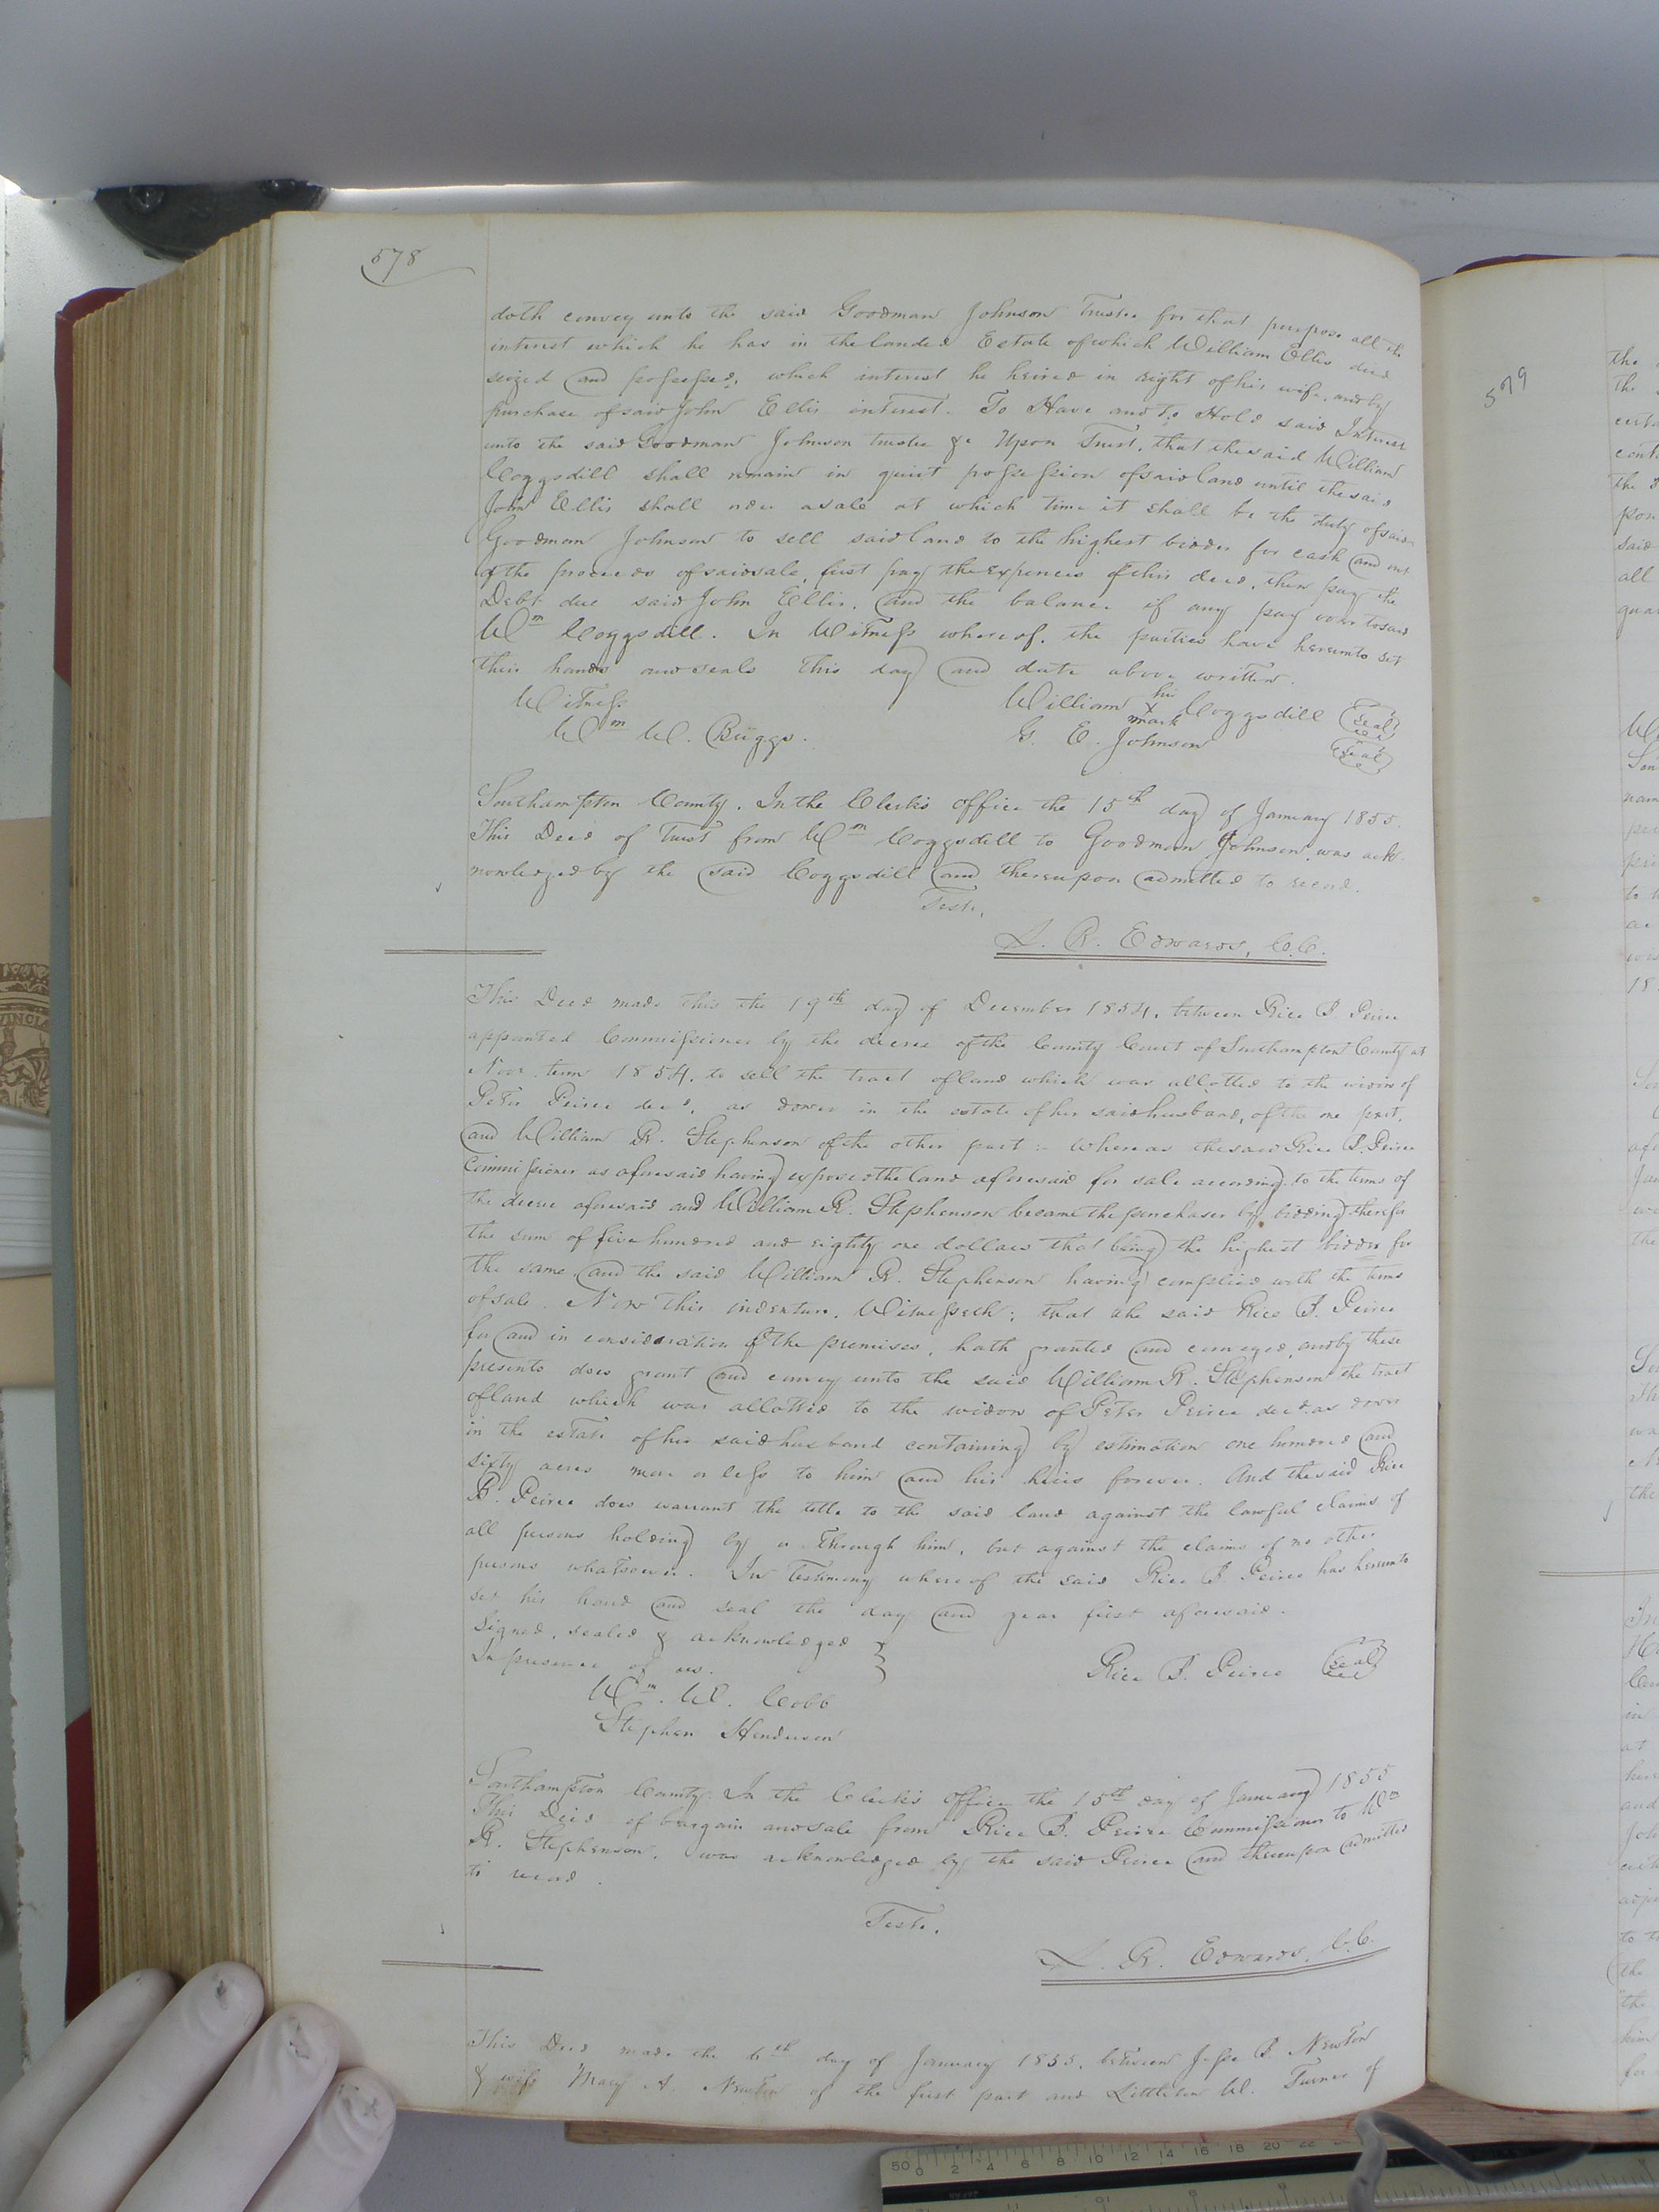 578
doth convey unto the said Goodman Johnson Trustee for that purpose all the
interest which he has in the landed Estate of which William Ellis decd
seized and possessed, which interest he heired in right of his wife, and by
purchase of said John Ellis interest. To Have and to Hold said Interest
unto the said Goodman Johnson trustee &c Upon Trust, that the said William
Coggsdill shall remain in quiet possession of said land until the said
John Ellis shall order a sale at which time it shall be the duty of said
Goodman Johnson to sell said land to the highest bidder for cash and out
of the proceeds of said sale, first pay the expenses of this deed, then pay the
Debt due said John Ellis, and the balance if any pay over to said
Wm Coggsdill. In Witness whereof, the parties have hereunto set
their hands and seals this day and date above written.
Witness
William his x mark Coggsdill seal
Wm W. Briggs.
G. E. Johnson seal
Southampton County. In the Clerk's office the 15th day of January 1855.
This Deed of Trust from Wm Coggsdill to Goodman Johnson, was ack-
nowledged by the said Coggsdill and thereupon admitted to record.
Teste,
L. R. Edwards, C.C.
This Deed made this the 19th day of December 1854, between Rice B. Peirce
appointed Commissioner by the decree of the County Court of Southampton County at
Novr. term 1854, to sell the tract of land which was allotted to the widow of
Peter Peirce decd, as dower in the estate of her said husband, of the one part,
and William R. Stephenson of the other part :- Whereas the said Rice B. Peirce
Commissioner as aforesaid having exposed the land aforesaid for sale according to the terms of
the decree aforesaid and William R. Stephenson became the purchaser by bidding therefor
the sum of five hundred and eighty one dollars that being the highest bidder for
the same and the said William R. Stephenson having complied with the terms
of sale. Now this indenture, Witnesseth; that the said Rice B. Peirce
for and in consideration of the premises, hath granted and conveyed, and by these
presents does grant and convey unto the said William R. Stephenson the tract
of land which was allotted to the widow of Peter Peirce decd as dower
in the estate of her said husband containing by estimation one hundred and
sixty acres more or less to him and his heirs forever. And the said Rice
B. Peirce does warrant the title to the said land against the lawful claims of
all persons holding by or through him, but against the claims of no other
persons whatsoever. In Testimony whereof the said Rice B. Peirce has hereunto
set his hand and seal the day and year first aforesaid.
Signed, sealed & acknowledged
In presence of us.
Rice B. Peirce seal
Wm. W. Cobb
Stephen Henderson
Southampton County. In the Clerk's office the 15th day of January 1855
This Deed of bargain and sale from Rice B. Peirce Commissioner to Wm
R. Stephenson, was acknowledged by the said Peirce and thereupon admitted
to record.
Teste,
L. R. Edwards, C.C.
This Deed made the 6th day of January 1855, between Jesse B. Newton
& wife Mary A. Newton of the first part and Littleton W. Turner of
579